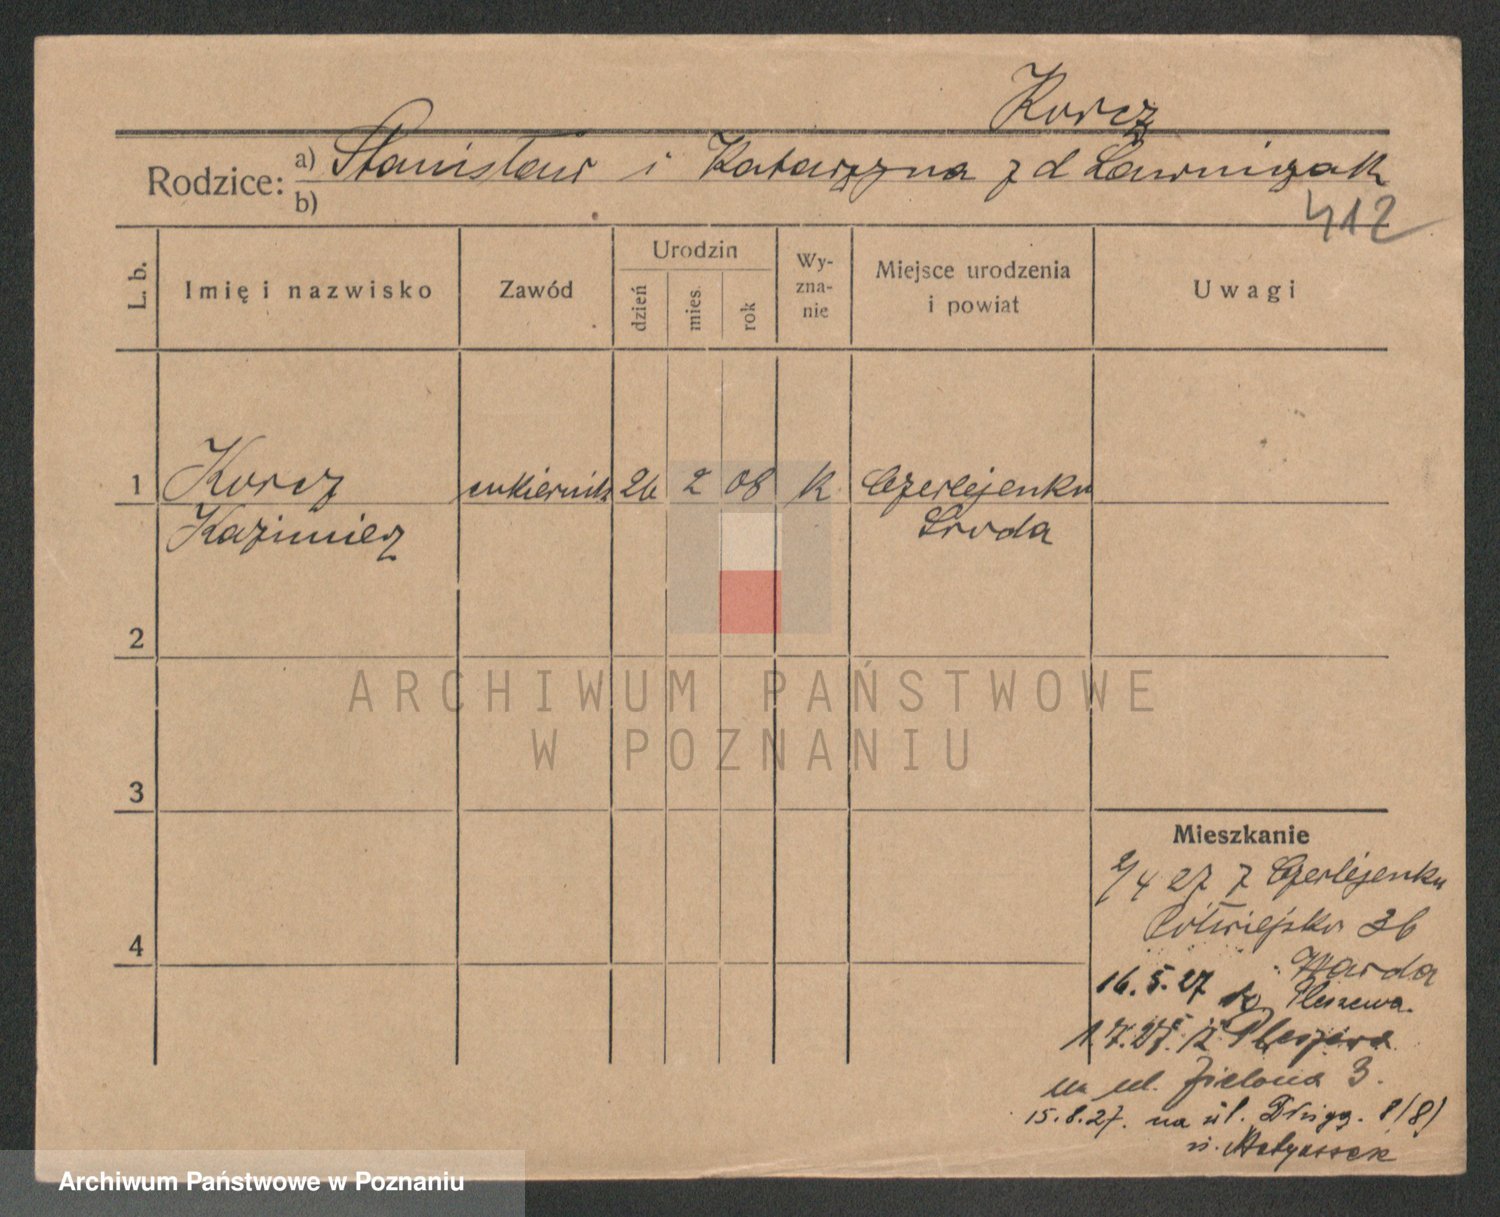 Korcz
Rodzice: a) Stanisław i Katarzyna z d Ławniczak
b)
412
L. b. Imię i nazwisko Zawód Urodzin dzień mies. rok Wy-zna-nie Miejsce urodzenia i powiat Uwagi
1 Korcz cukiernik 26 2 08 K Czerlejenko
Kazimierz Środa
2
ARCHIWUM PAŃSTWOWE
W POZNANIU
3
Mieszkanie
2/4 27 z Czerlejenka
Półwiejska 36
4
Warda
16.5.27 do Pleszewa.
1.7.27. z Pleszewa
na ul. Zielona 3.
15.8.27. na ul. Długą. 8/8)
u. Matyassek
Archiwum Państwowe w Poznaniu